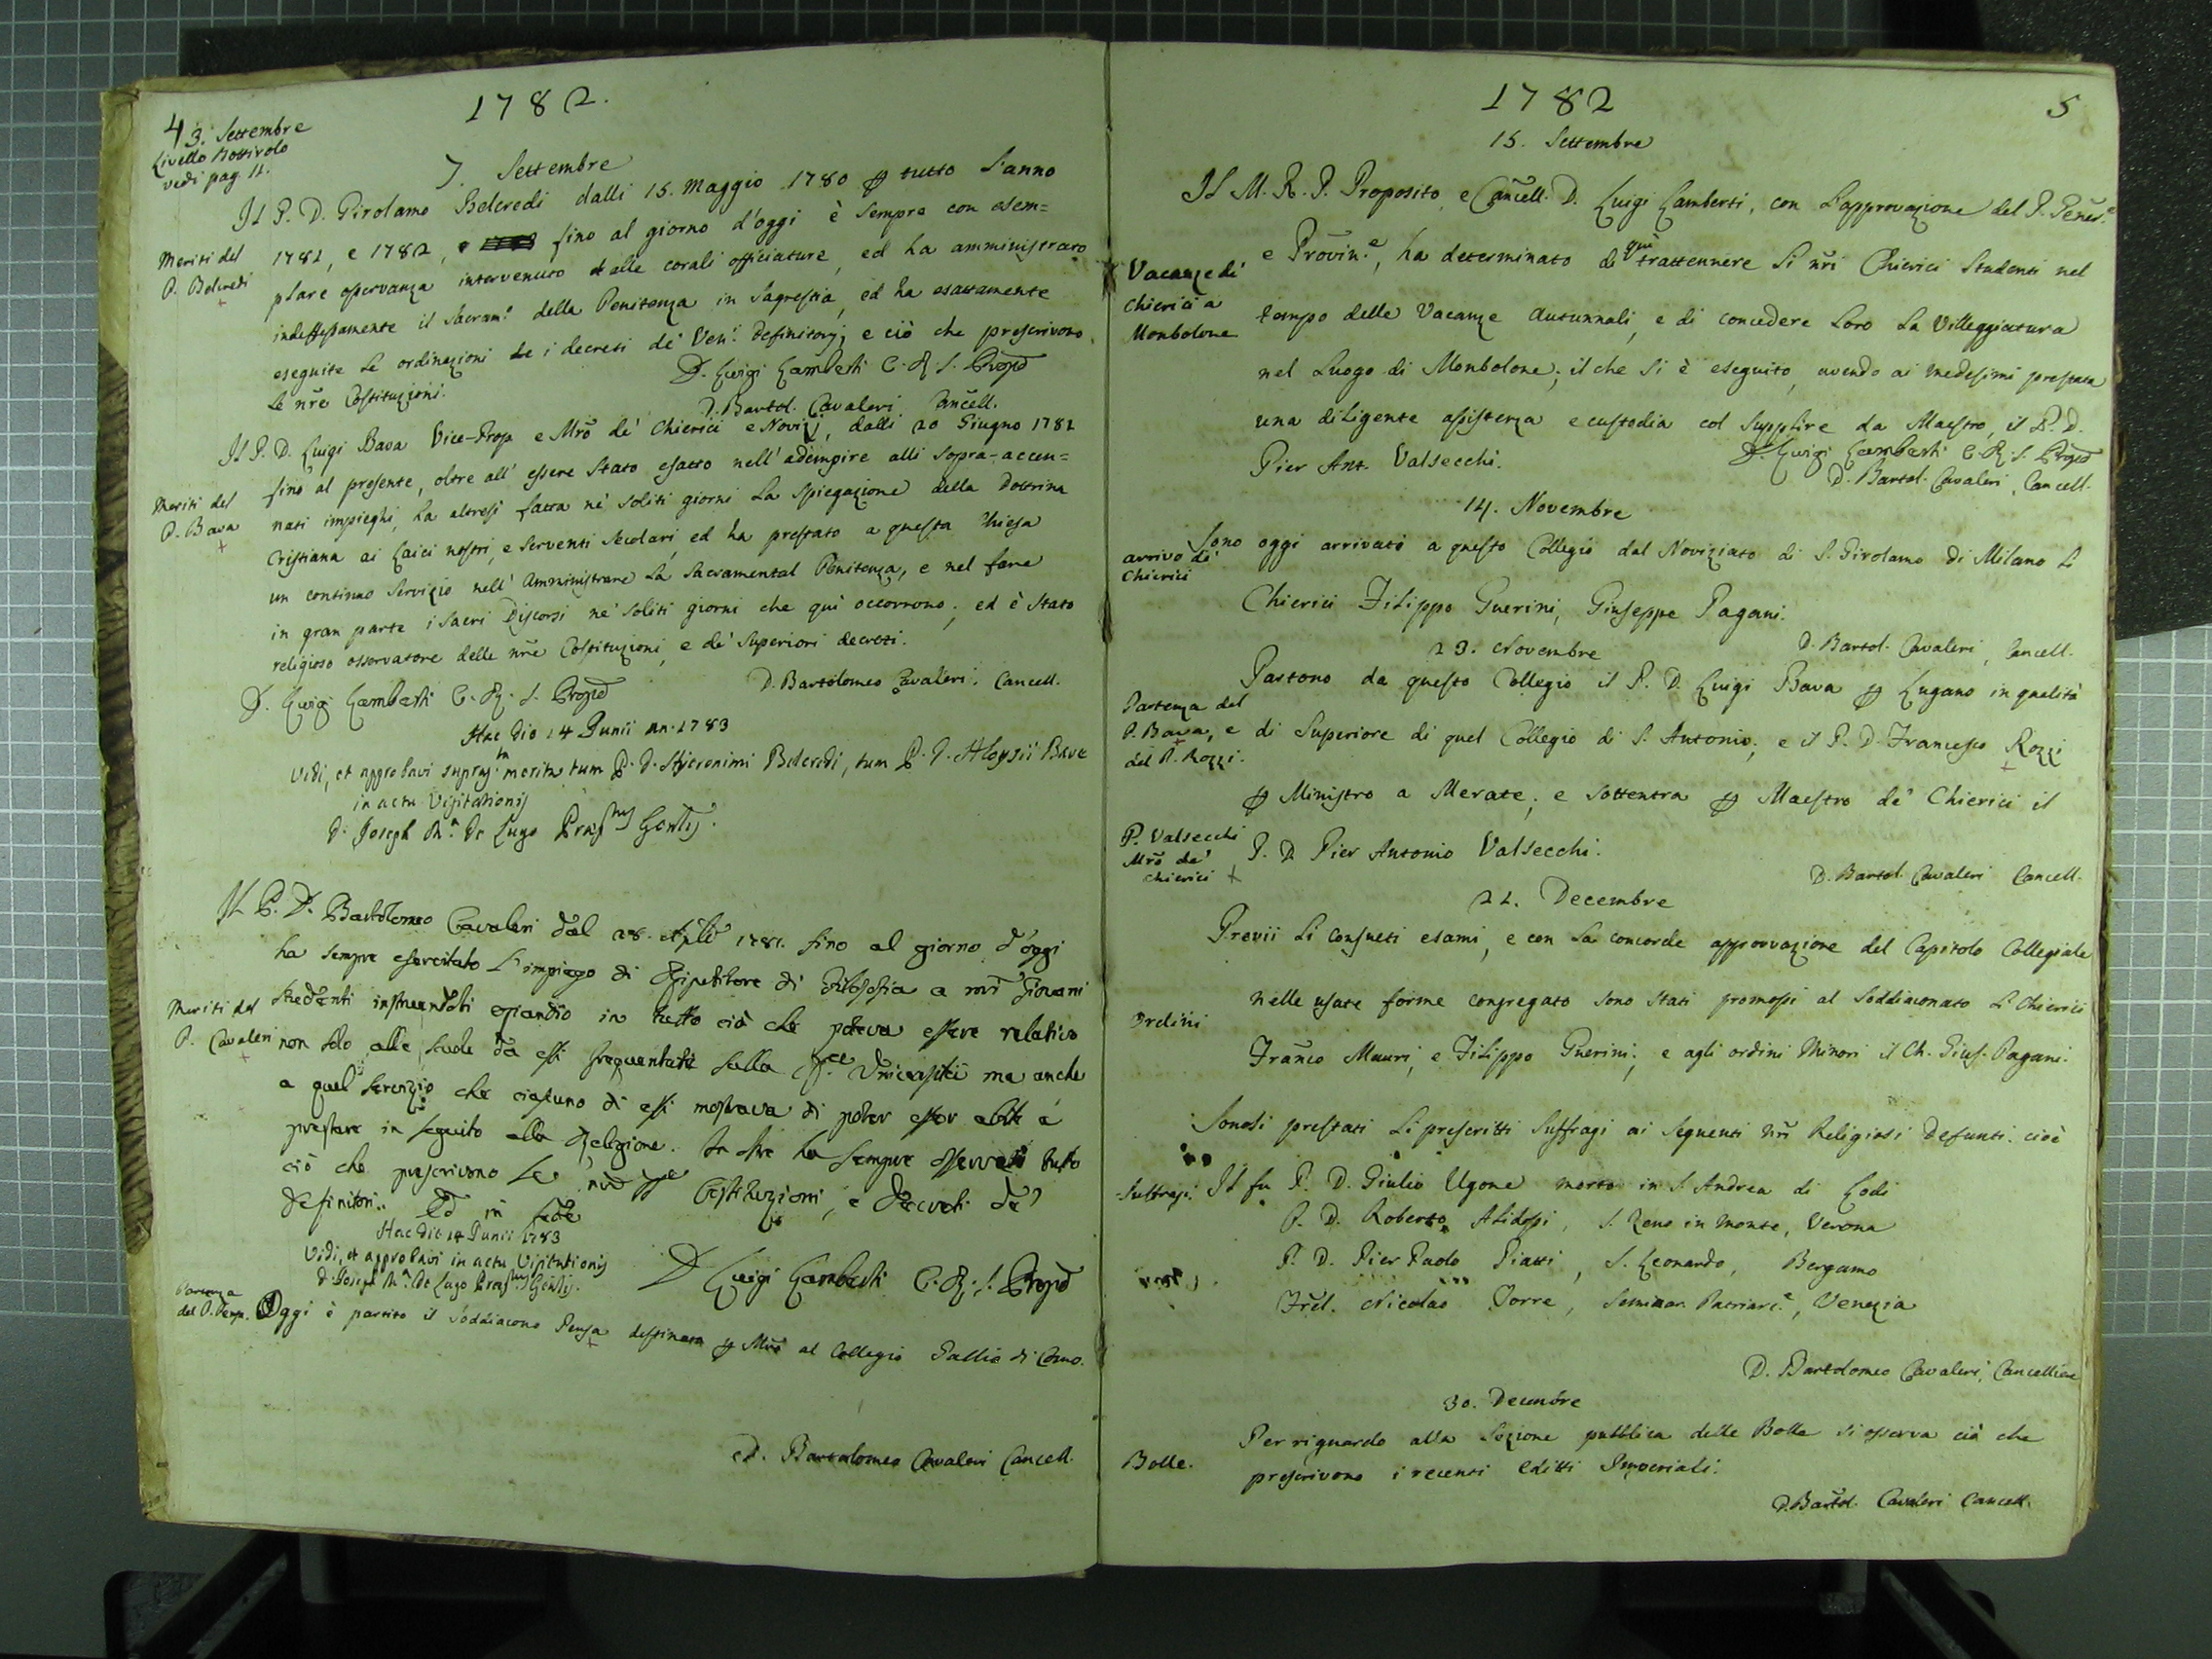 4
1782.
3. Settembre
Livello Bottirolo
vedi pag. 11.
7. Settembre
Il P. D. Girolamo Belcredi dalli 15. Maggio 1780 ꝑ tutto l'anno
Meriti del
P. Belcredi
1781, e 1782, fino al giorno d'oggi è sempre con esem=
plare osservanza intervenuto alle corali officiature, ed ha amministrato
indefessamente il Sacram.º della Penitenza in Sagrestia, ed ha esattamente
eseguite le ordinazioni e i decreti de' Ven. Definitorj, e ciò che prescrivono
le nr̃e Costituzioni.
D. Luigi Lamberti C. R. S. Prop.º
D. Bartol. Cavaleri Cancell.
Il P. D. Luigi Bava Vice-Prop. e Mrõ de' Chierici e Novizj, dalli 20 Giugno 1781
fino al presente, oltre all' essere stato esatto nell' adempire alli sopra-accen=
Meriti del
P. Bava
nati impieghi, ha altresì fatta ne' soliti giorni la spiegazione della Dottrina
Cristiana ai Laici nostri, e serventi secolari, ed ha prestato a questa Chiesa
un continuo servizio nell' amministrare la Sacramental Penitenza, e nel fare
in gran parte i sacri Discorsi ne' soliti giorni che quì occorrono; ed è stato
religioso osservatore delle nr̃e Costituzioni, e de' Superiori decreti.
D. Luigi Lamberti C. R. S. Prop.º
D. Bartolomeo Cavaleri. Cancell.
Hac die 14 Junii an. 1783
Vidi, et approbavi supraj.ta merita tum P. D. Hyeronimi Belcredi, tum P. D. Aloysii Bave
in actu Visitationis
D. Joseph M.ª De Lugo Præp.tus Gen̄lis.
Il P. D. Bartolomeo Cavaleri dal 28. Aplẽ 1781. fino al giorno d'oggi
ha sempre esercitato l'impiego di Ripetitore di Filosofia a nrĩ Giovani
Meriti del
P. Cavaleri
studenti instruendoli eziandio in tutto ciò che poteva essere relativo
non solo alle scuole da essi frequentate sulla R.ce Università ma anche
a quel servizio che ciascuno di essi mostrava di poter esser abile a
prestare in seguito alla Religione. In oltre ha sempre osservato tutto
ciò che prescrivono le nrẽ Costituzioni, e Decreti de'
Definitori. Ed in fede
Hac die 14 Junii 1783
Vidi, et approbavi in actu Visitationis
D. Joseph M.ª De Lugo Præp.tus Gen̄lis.
D. Luigi Lamberti C. R. S. Prop.º
Partenza
del P. Pensa.
Oggi è partito il Soddiacono Pensa destinato ꝑ Mrõ al Collegio Gallio di Como.
D. Bartolomeo Cavaleri Cancell.
1782
5
15. Settembre
Il M. R. P. Proposito, e Cancell. D. Luigi Lamberti, con l'approvazione del P. Gener.e
e Provin.e, ha determinato di quì trattennere li nrĩ Chierici Studenti nel
Vacanze de'
Chierici a
Monbolone
tempo delle Vacanze Autunnali, e di concedere loro la Villeggiatura
nel luogo di Monbolone; il che si è eseguito, avendo ai medesimi prestata
una diligente assistenza e custodia col supplire da Maestro, il P. D.
Pier Ant. Valsecchi.
D. Luigi Lamberti C. R. S. Prop.º
D. Bartol. Cavaleri, Cancell.
14. Novembre
arrivo de'
Chierici
Sono oggi arrivati a questo Collegio dal Noviziato di S. Girolamo di Milano li
Chierici Filippo Guerini, Giuseppe Pagani.
D. Bartol. Cavaleri, Cancell.
23. Novembre
Partono da questo Collegio il P. D. Luigi Bava ꝑ Lugano in qualità
Partenza del
P. Bava, e
del P. Rozzi.
di Superiore di quel Collegio di S. Antonio; e il P. D. Francesco Rozzi
ꝑ Ministro a Merate; e sottentra ꝑ Maestro de' Chierici il
P. Valsecchi
Mrõ de'
Chierici
P. D. Pier Antonio Valsecchi.
D. Bartol. Cavaleri Cancell.
21. Decembre
Previi li consueti esami, e con la concorde approvazione del Capitolo Collegiale
nelle usate forme congregato sono stati promossi al Soddiaconato li Chierici
Ordini
Franco Mauri, e Filippo Guerini; e agli ordini Minori il Ch. Gius. Pagani.
Sonosi prestati li prescritti suffragi ai seguenti nrĩ Religiosi Defunti. cioè
Suffragi.
Il fu P. D. Giulio Ugone morto in S. Andrea di Lodi
P. D. Roberto Alidosi, S. Zeno in Monte, Verona
P. D. Pier Paolo Piatti, S. Leonardo, Bergamo
Frat̃. Nicolao Torre, Seminar. Patriarc.e, Venezia
D. Bartolomeo Cavaleri, Cancelliere
30. Decembre
Bolle.
Per riguardo alla Lezione pubblica delle Bolle si osserva ciò che
prescrivono i recenti Editti Imperiali.
D. Bartol. Cavaleri Cancell.